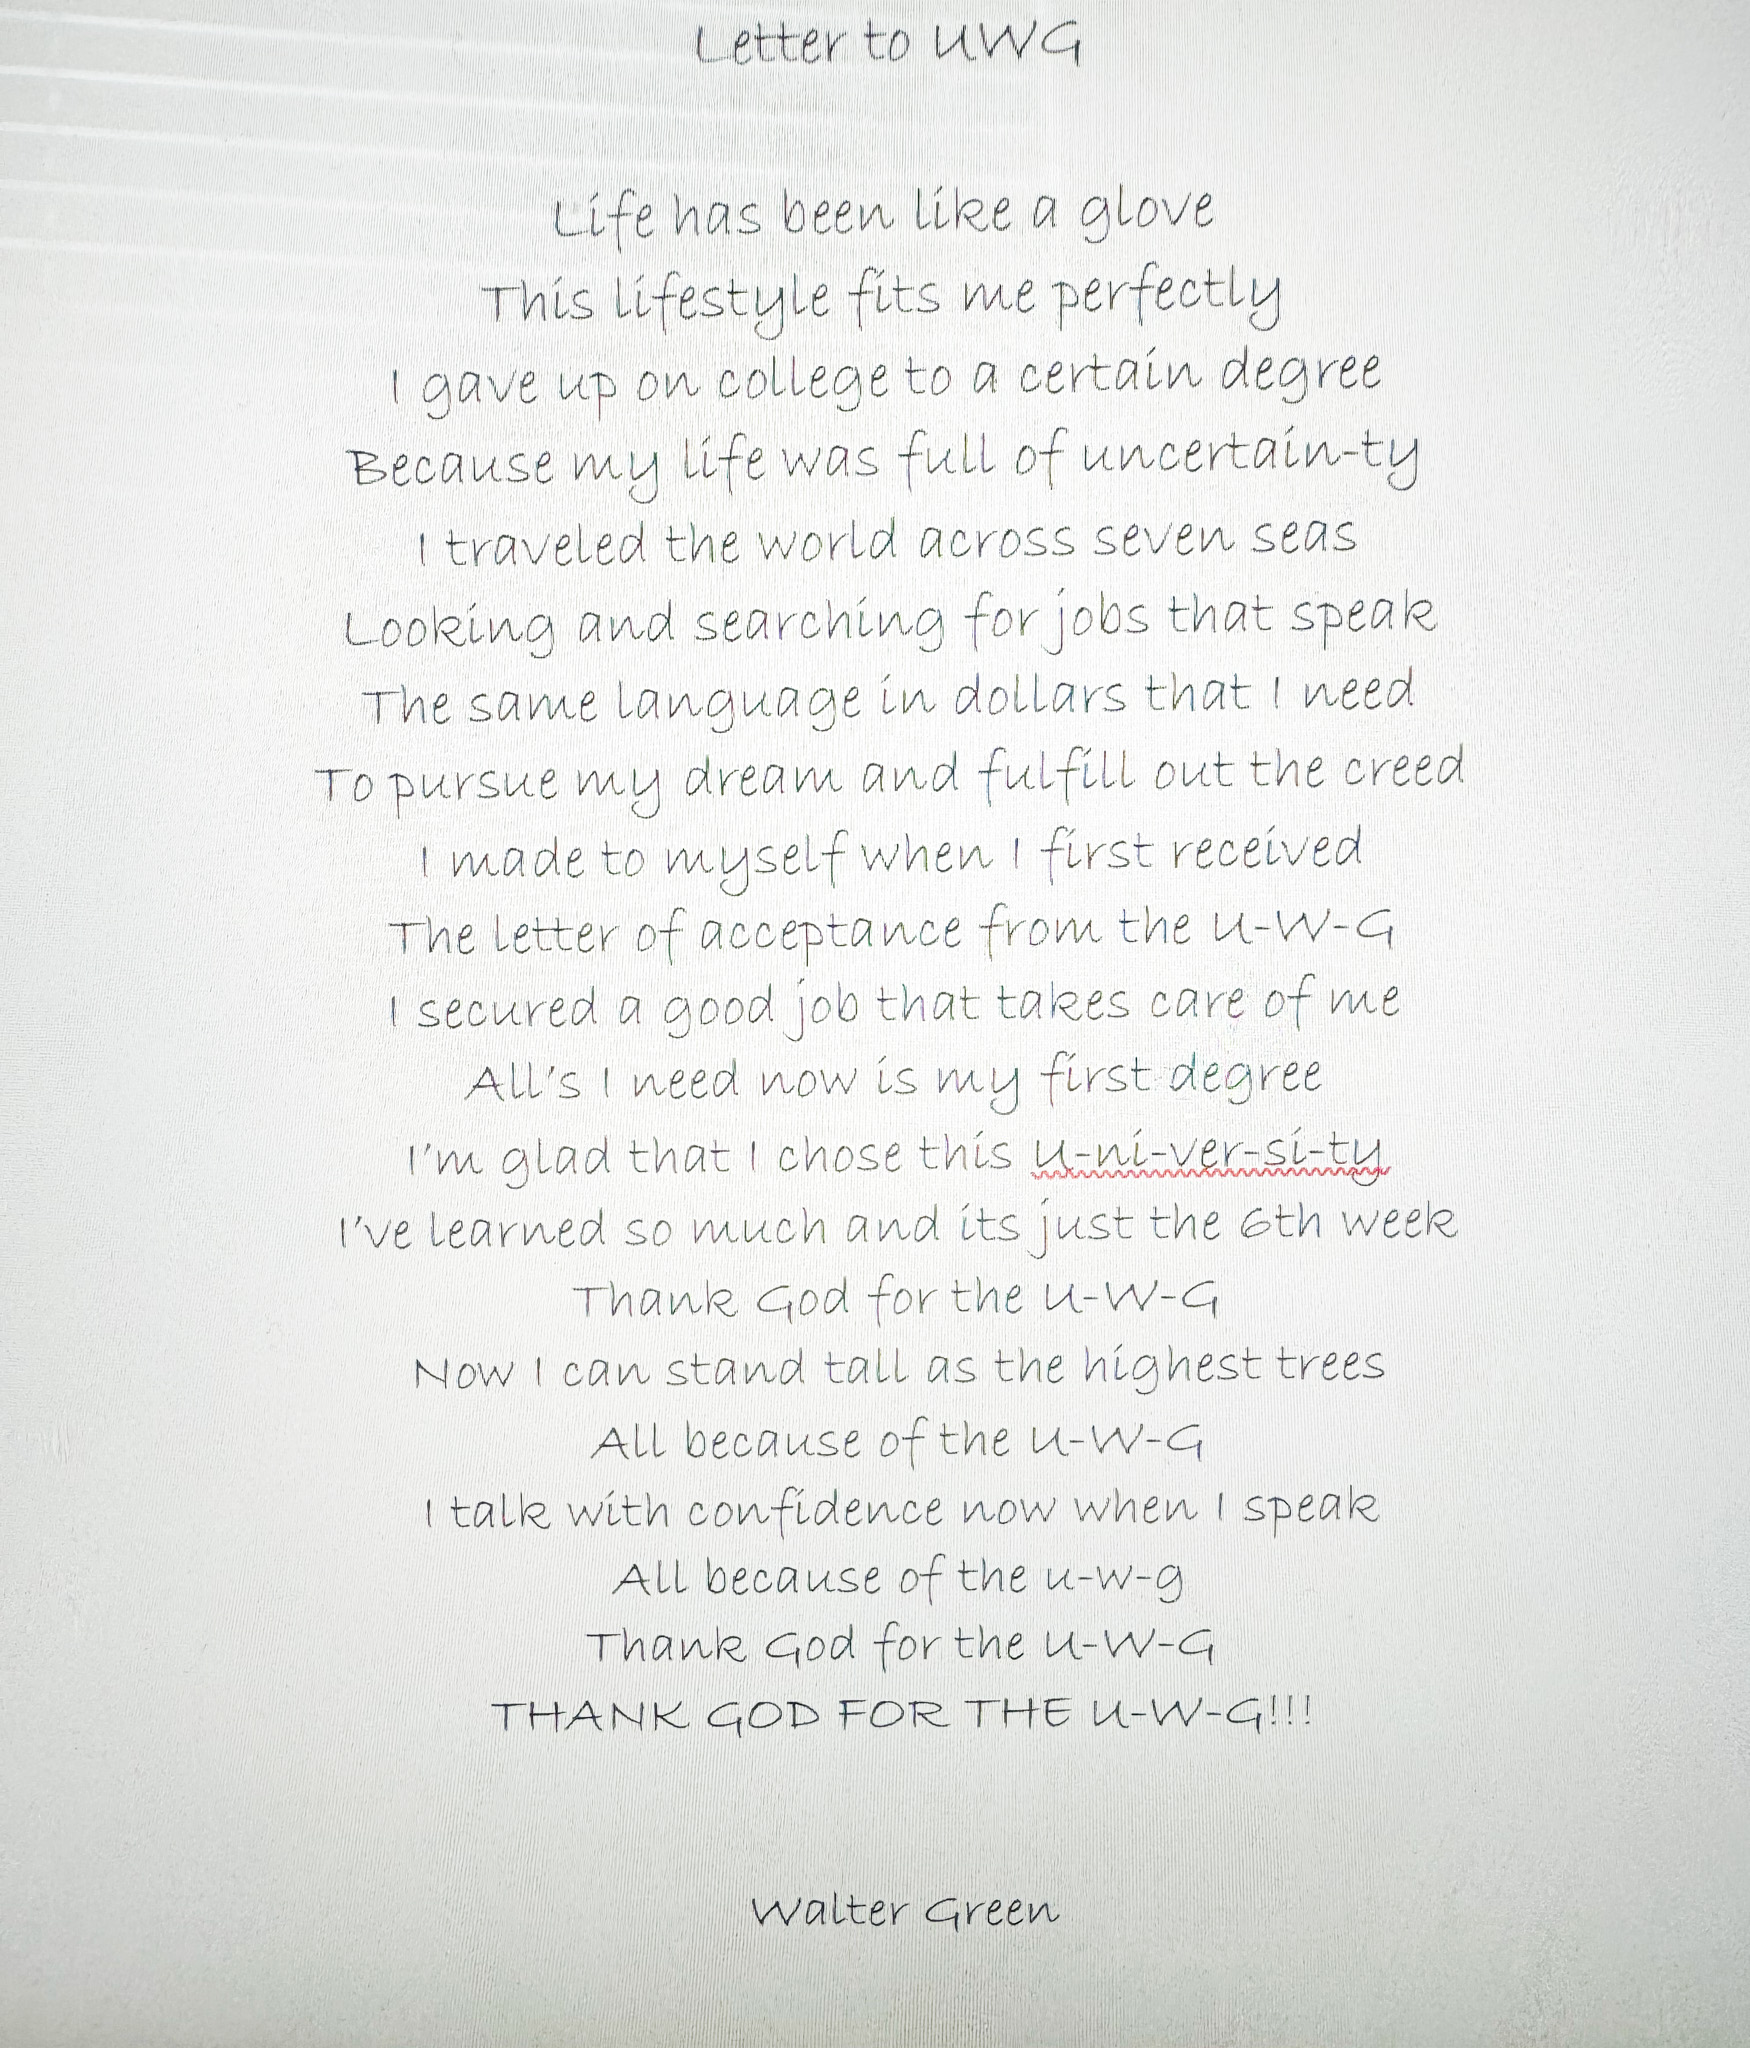 Letter to UWG
Life has been like a glove
This lifestyle fits me perfectly
I gave up on college to a certain degree
Because my life was full of uncertain-ty
I traveled the world across seven seas
Looking and searching for jobs that speak
The same language in dollars that I need
To pursue my dream and fulfill out the creed
I made to myself when I first received
The letter of acceptance from the U-W-G
I secured a good job that takes care of me
All's I need now is my first degree
I'm glad that I chose this u-ni-ver-si-ty
I've learned so much and its just the 6th week
Thank God for the U-W-G
Now I can stand tall as the highest trees
All because of the U-W-G
I talk with confidence now when I speak
All because of the u-w-g
Thank God for the U-W-G
THANK GOD FOR THE U-W-G!!!
Walter Green